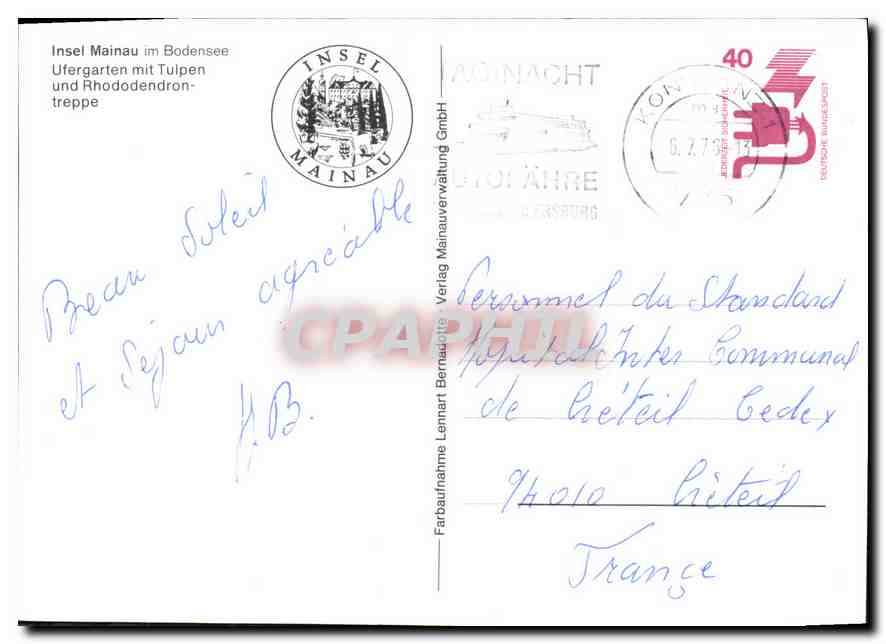 Insel Mainau im Bodensee
Ufergarten mit Tulpen
und Rhododendron-
treppe
INSEL
MAINAU
Beau Soleil
et séjour agréable
H.B.
Farbaufnahme Lennart Bernadotte · Verlag Mainauverwaltung GmbH
TAG NACHT
AUTOFÄHRE
ERSBURG
KONSTANZ 1
6.7.7
13
40
JEDERZEIT SICHERHEIT
DEUTSCHE BUNDESPOST
Personnel du Standard
Hopital Inter Communal
de Créteil Cedex
94010 Créteil
France
CPAPHIL